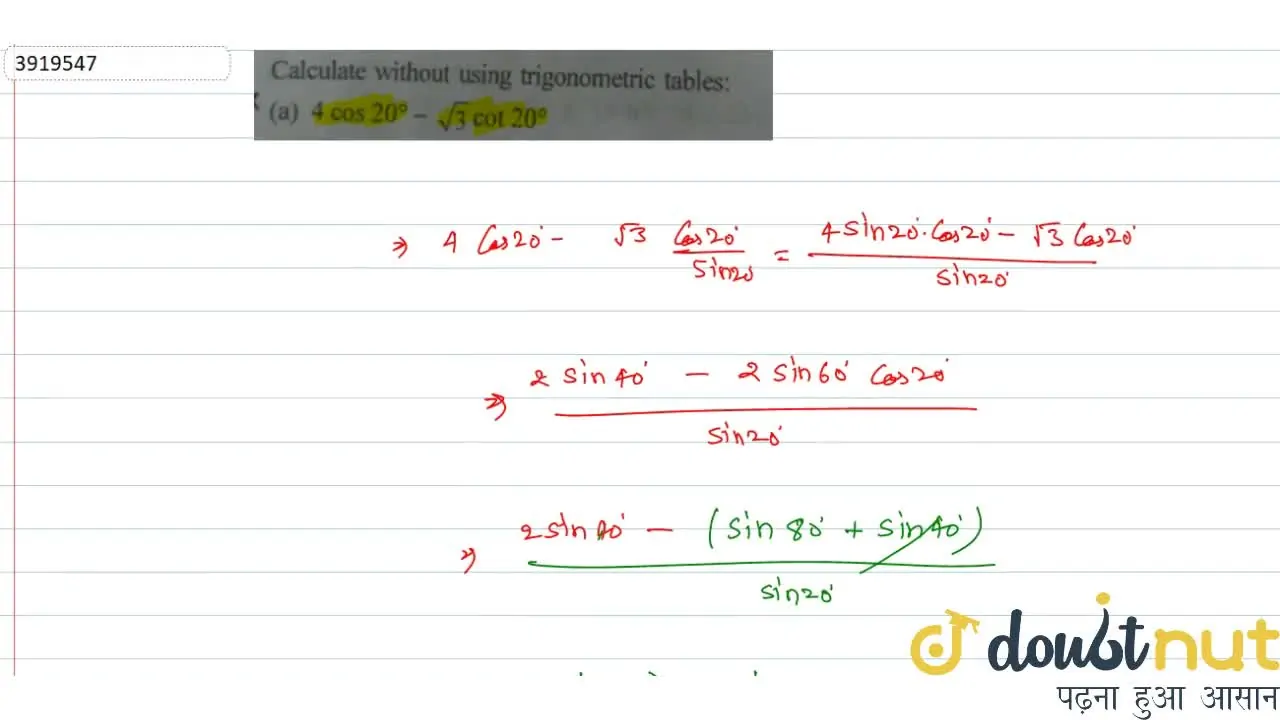 3919547
Calculate without using trigonometric tables:
(a) 4 cos 20° – √3 cot 20°
⇒ 4 Cos20° – √3 Cos20°/Sin20 = 4Sin20°.Cos20° – √3 Cos20°/Sin20°
⇒ 2 Sin40° – 2 Sin60° Cos20°/Sin20°
⇒ 2Sin40° – (Sin80° + Sin40°)/Sin20°
doubtnut
पढ़ना हुआ आसान